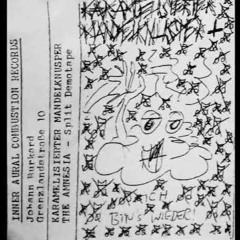 INNER AURAL COMBUSTION RECORDS
Grenzlandstraße 10
KARAMELISIERTER MANDELKNUSPER
THE AMNESIA - Split Demotape
KARAMELISIERTER
MANDELKNUSPER
+
ICH
BIN'S WIEDER!